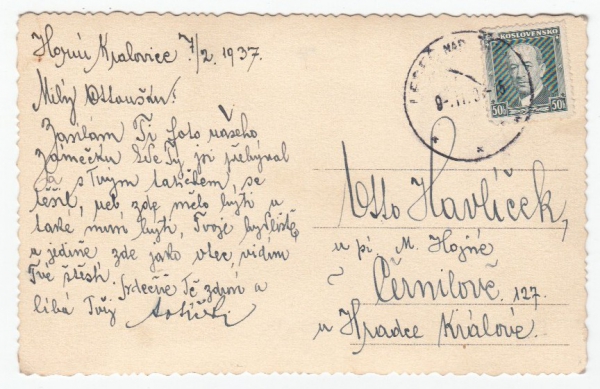 Horní Kralovice 7/2. 1937.
Milý Ottoušku!
Zasílám Ti foto našeho
zámečku kde Ty jsi přebýval
a s Tvým tatíčkem, se
těšil, neb zde mělo býti a
také musí býti, Tvoje
a jedině zde jako otec vidím
Tvé štěstí. Srdečně Tě zdraví a
líbá Tvůj
KOSLOVENSKO
50h 50h
LEDEČ NAD
Otto Havlíček,
u pí. M. Hojné
Černilově 127.
u Hradce Králové.